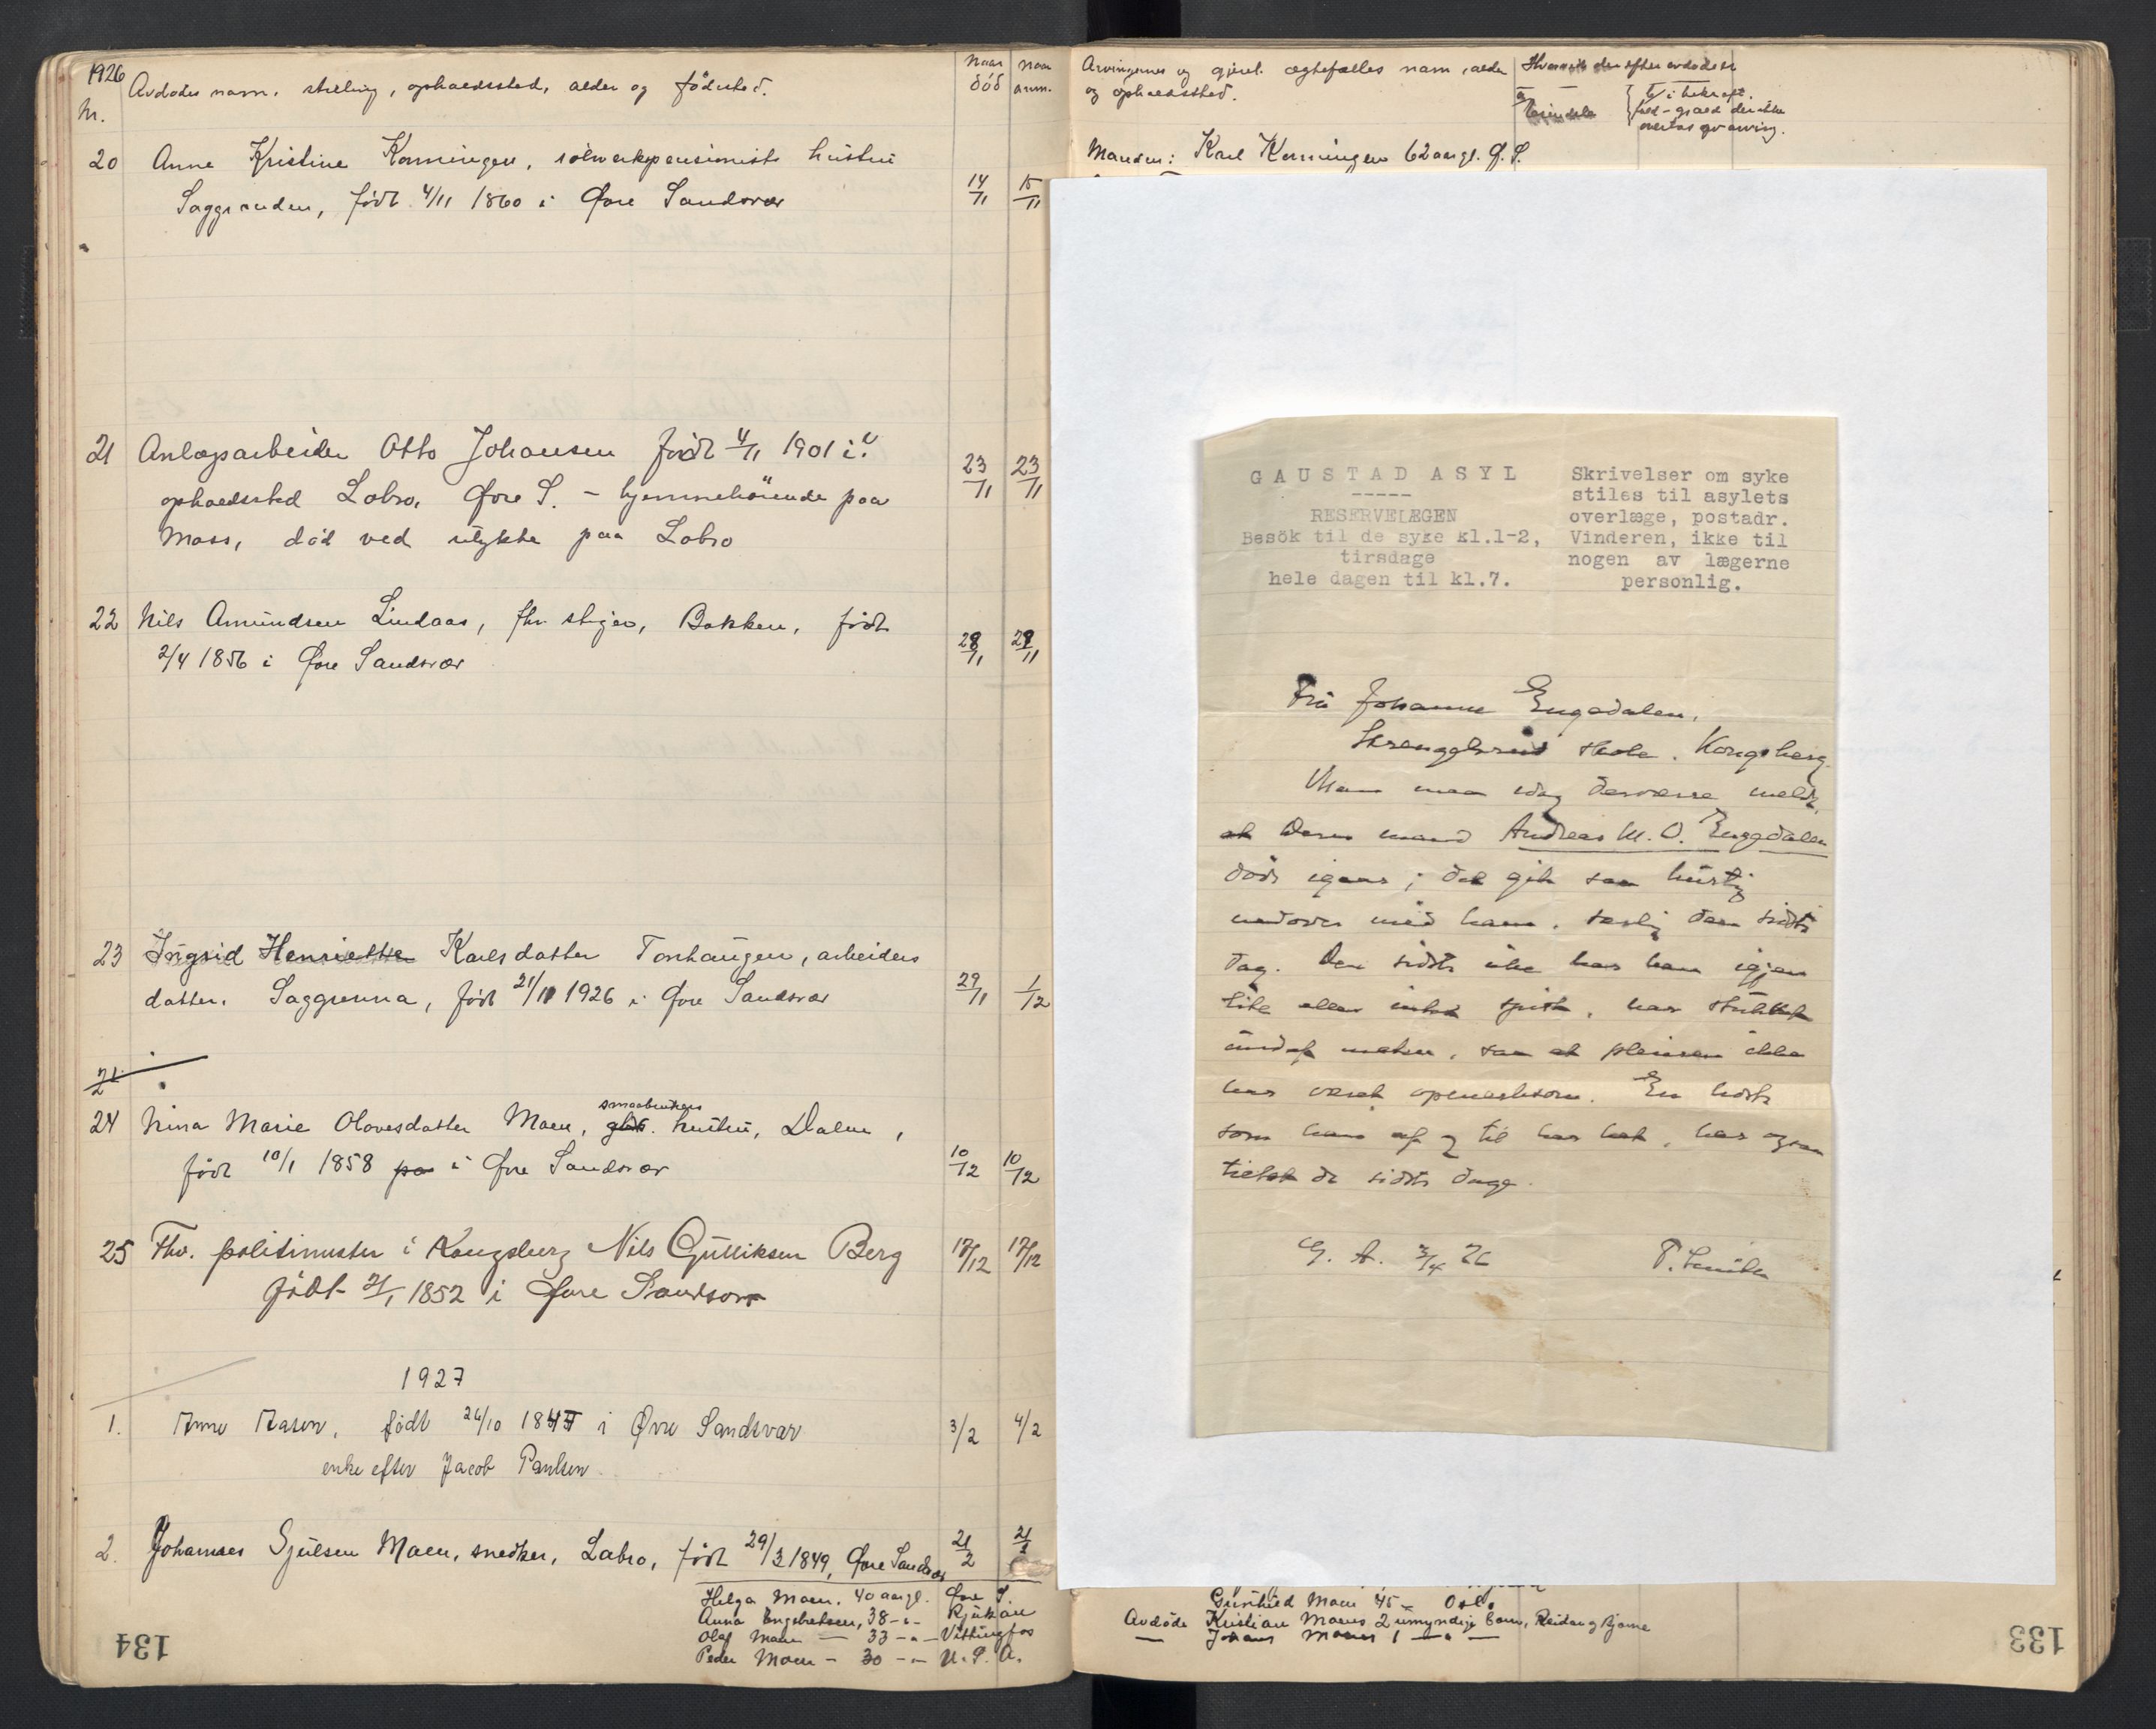 1926
Avdødes navn, stilling, opholdssted, alder og fødested.
Nr.
naar død
naar anm.
20 Anne Kristine Korningen, sølverkspensionists hustru
Saggrenden, født 4/11 1860 i Øvre Sandsvær
14/11 15/11
21 Anlægsarbeider Otto Johansen født 4/11 1901 i?
opholdssted Labro, Øvre S. - hjemmehörende paa
Moss, död ved ulykke paa Labro
23/11 23/11
22 Nils Amundsen Lindaas, fhv. stiger, Bakken, født
2/4 1856 i Øvre Sandsvær
28/11 29/11
23 Ingrid Henriette Karlsdatter Torhaugen, arbeiders
datter. Saggrenna, født 21/11 1926 i Øvre Sandsvær
29/11 1/12
24 Nina Marie Olavesdatter Moen, smaabrukers hustru, Dalen,
født 10/1 1858 i Øvre Sandsvær
10/12 10/12
25 Fhv. politimester i Kongsberg Nils Gulliksen Berg
født 21/1 1852 i Øvre Sandsvær
17/12 17/12
1927
1. Anne Aasen, født 26/10 1847 i Øvre Sandsvær
enke efter Jacob Paulsen
3/2 4/2
2. Johannes Gjulsen Moen, snedker, Labro, født 29/3 1849, Øvre Sandsvær
21/2
Helga Moen, 40 aar gl. Øvre S.
Anna Engebretsen, 38 -"- Rjukan
Olaf Moen — 33 -"- Vittingfos
Peder Moen - 30 -"- U.S.A.
134
Arvingernes og gjenl. ægtefælles navn, alder
og opholdssted.
efter avdøde er
Manden: Karl Korningen 62 aar gl. Ø.S.
GAUSTAD ASYL
-----
RESERVELÆGEN
Besök til de syke kl.1-2,
tirsdage
hele dagen til kl.7.
Skrivelser om syke
stiles til asylets
overlæge, postadr.
Vinderen, ikke til
nogen av lægerne
personlig.
Fru Johanne Engedalen.
skole. Kongsberg.
Man maa idag desværre melde,
at Deres mand Andreas M. O. Engedalen
døde igaar; det gik saa hurtig
nedover med ham, særlig den sidste
dag. Den sidste uke har han igjen
lite eller intet spist, har stukket
undaf maten, saa at pleieren ikke
har været opmerksom. En hoste
som han af og til har hat, har ogsaa
tiltat de sidste dage.
G. A. 3/4 26
Gunhild Moen 45 - Oslo
Avdøde Kristian Moens 2 umyndige barn, Reidar og Bjarne
— Johans Moens 1 —"—
133